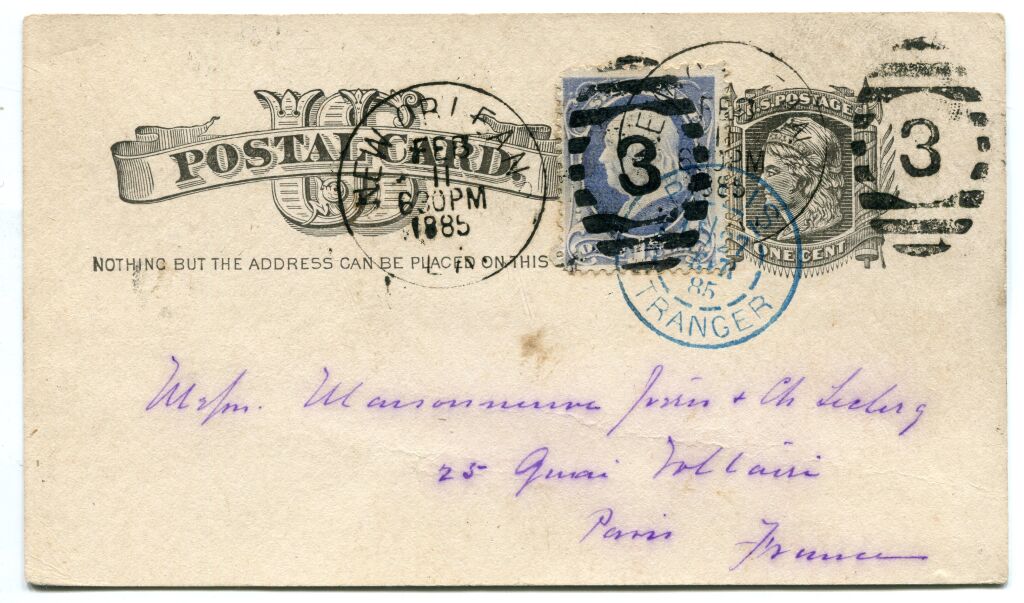 POSTAL CARD.
NEW ORLEANS
FEB
11
630PM
1885
LA.
NOTHING BUT THE ADDRESS CAN BE PLACED ON THIS
3
U.S. POSTAGE
ONE CENT
3
85
ETRANGER
Messrs. Maisonneuve frères & Ch Leclerq
25 Quai Voltaire
Paris France